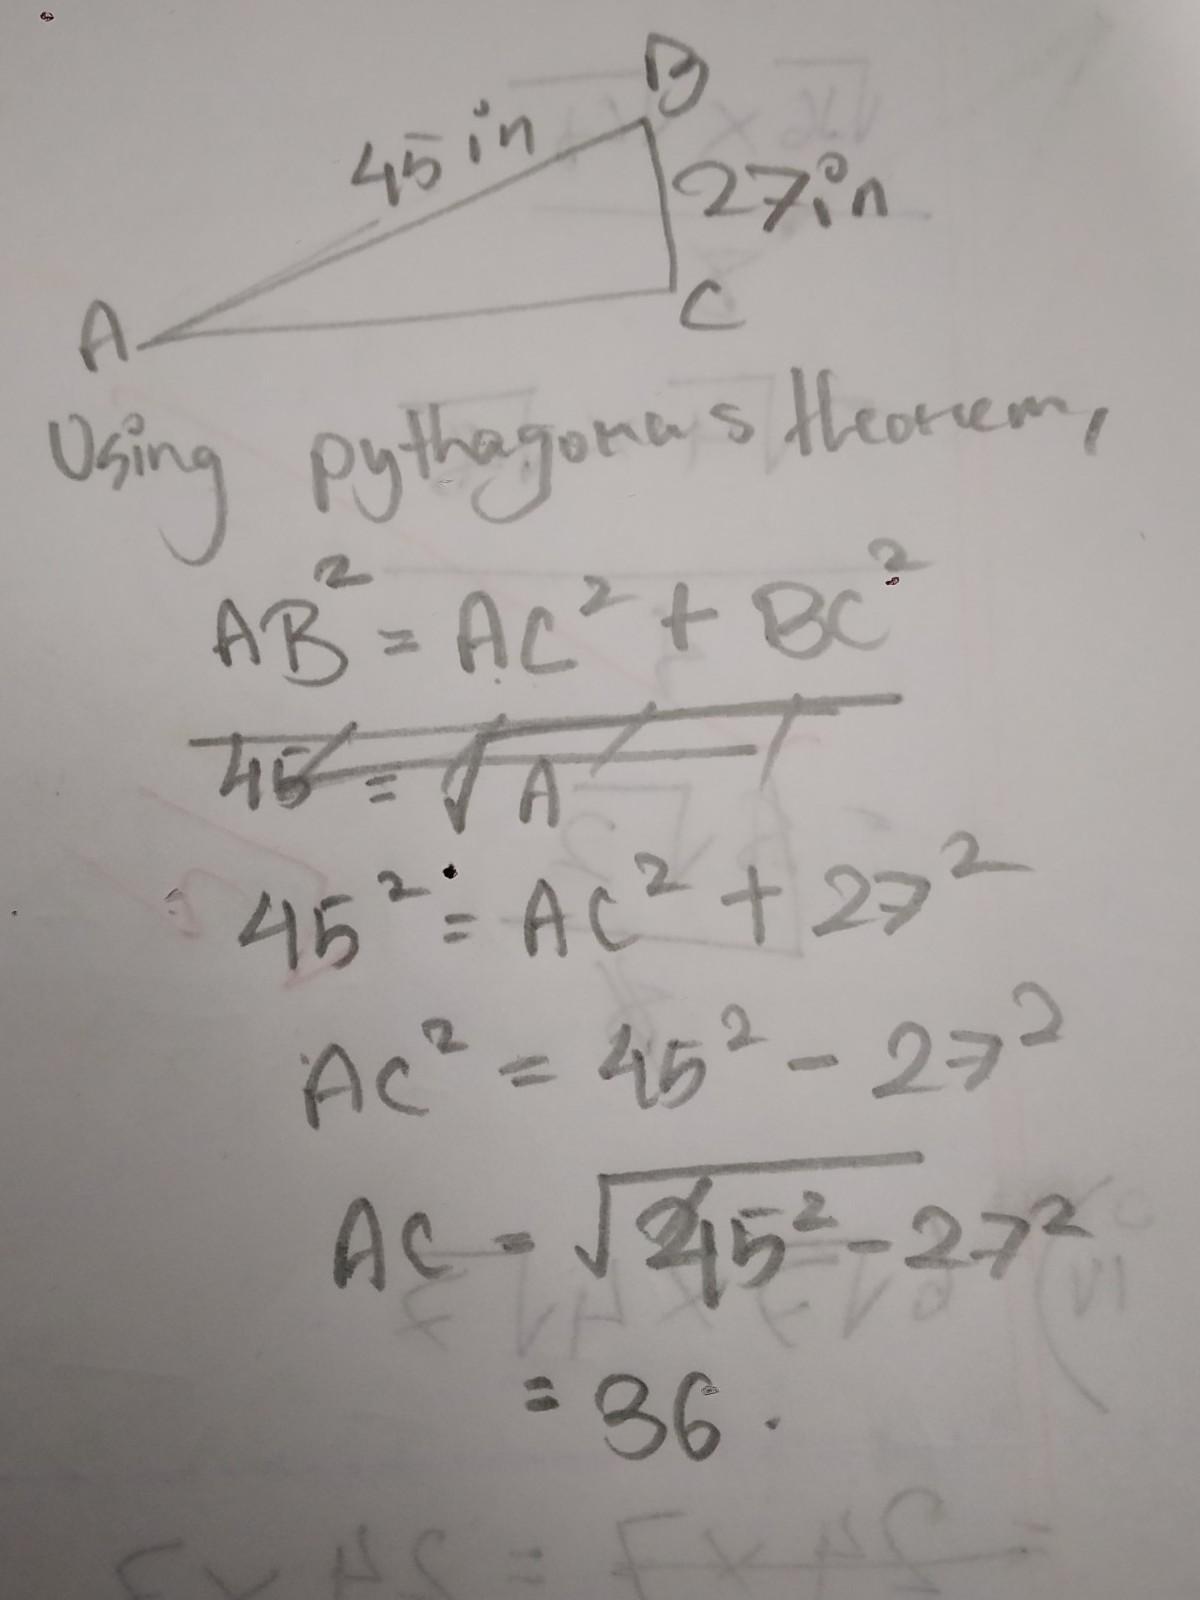 B
45 in
27in
A
C
Using pythagoras theorem,
AB² = AC² + BC²
45 = √A
45² = AC² + 27²
AC² = 45² - 27²
AC = √45² - 27²
= 36.